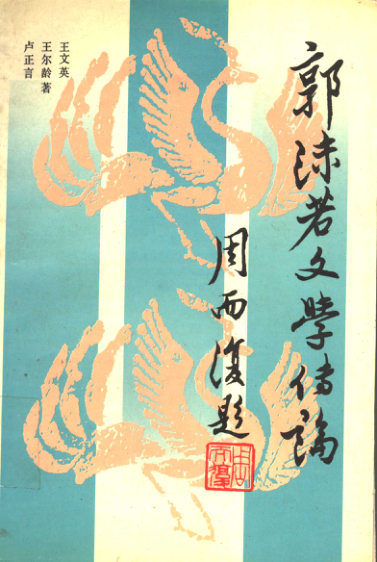 郭沫若文學傳論
周而復題
王文英
王尔龄著
卢正言